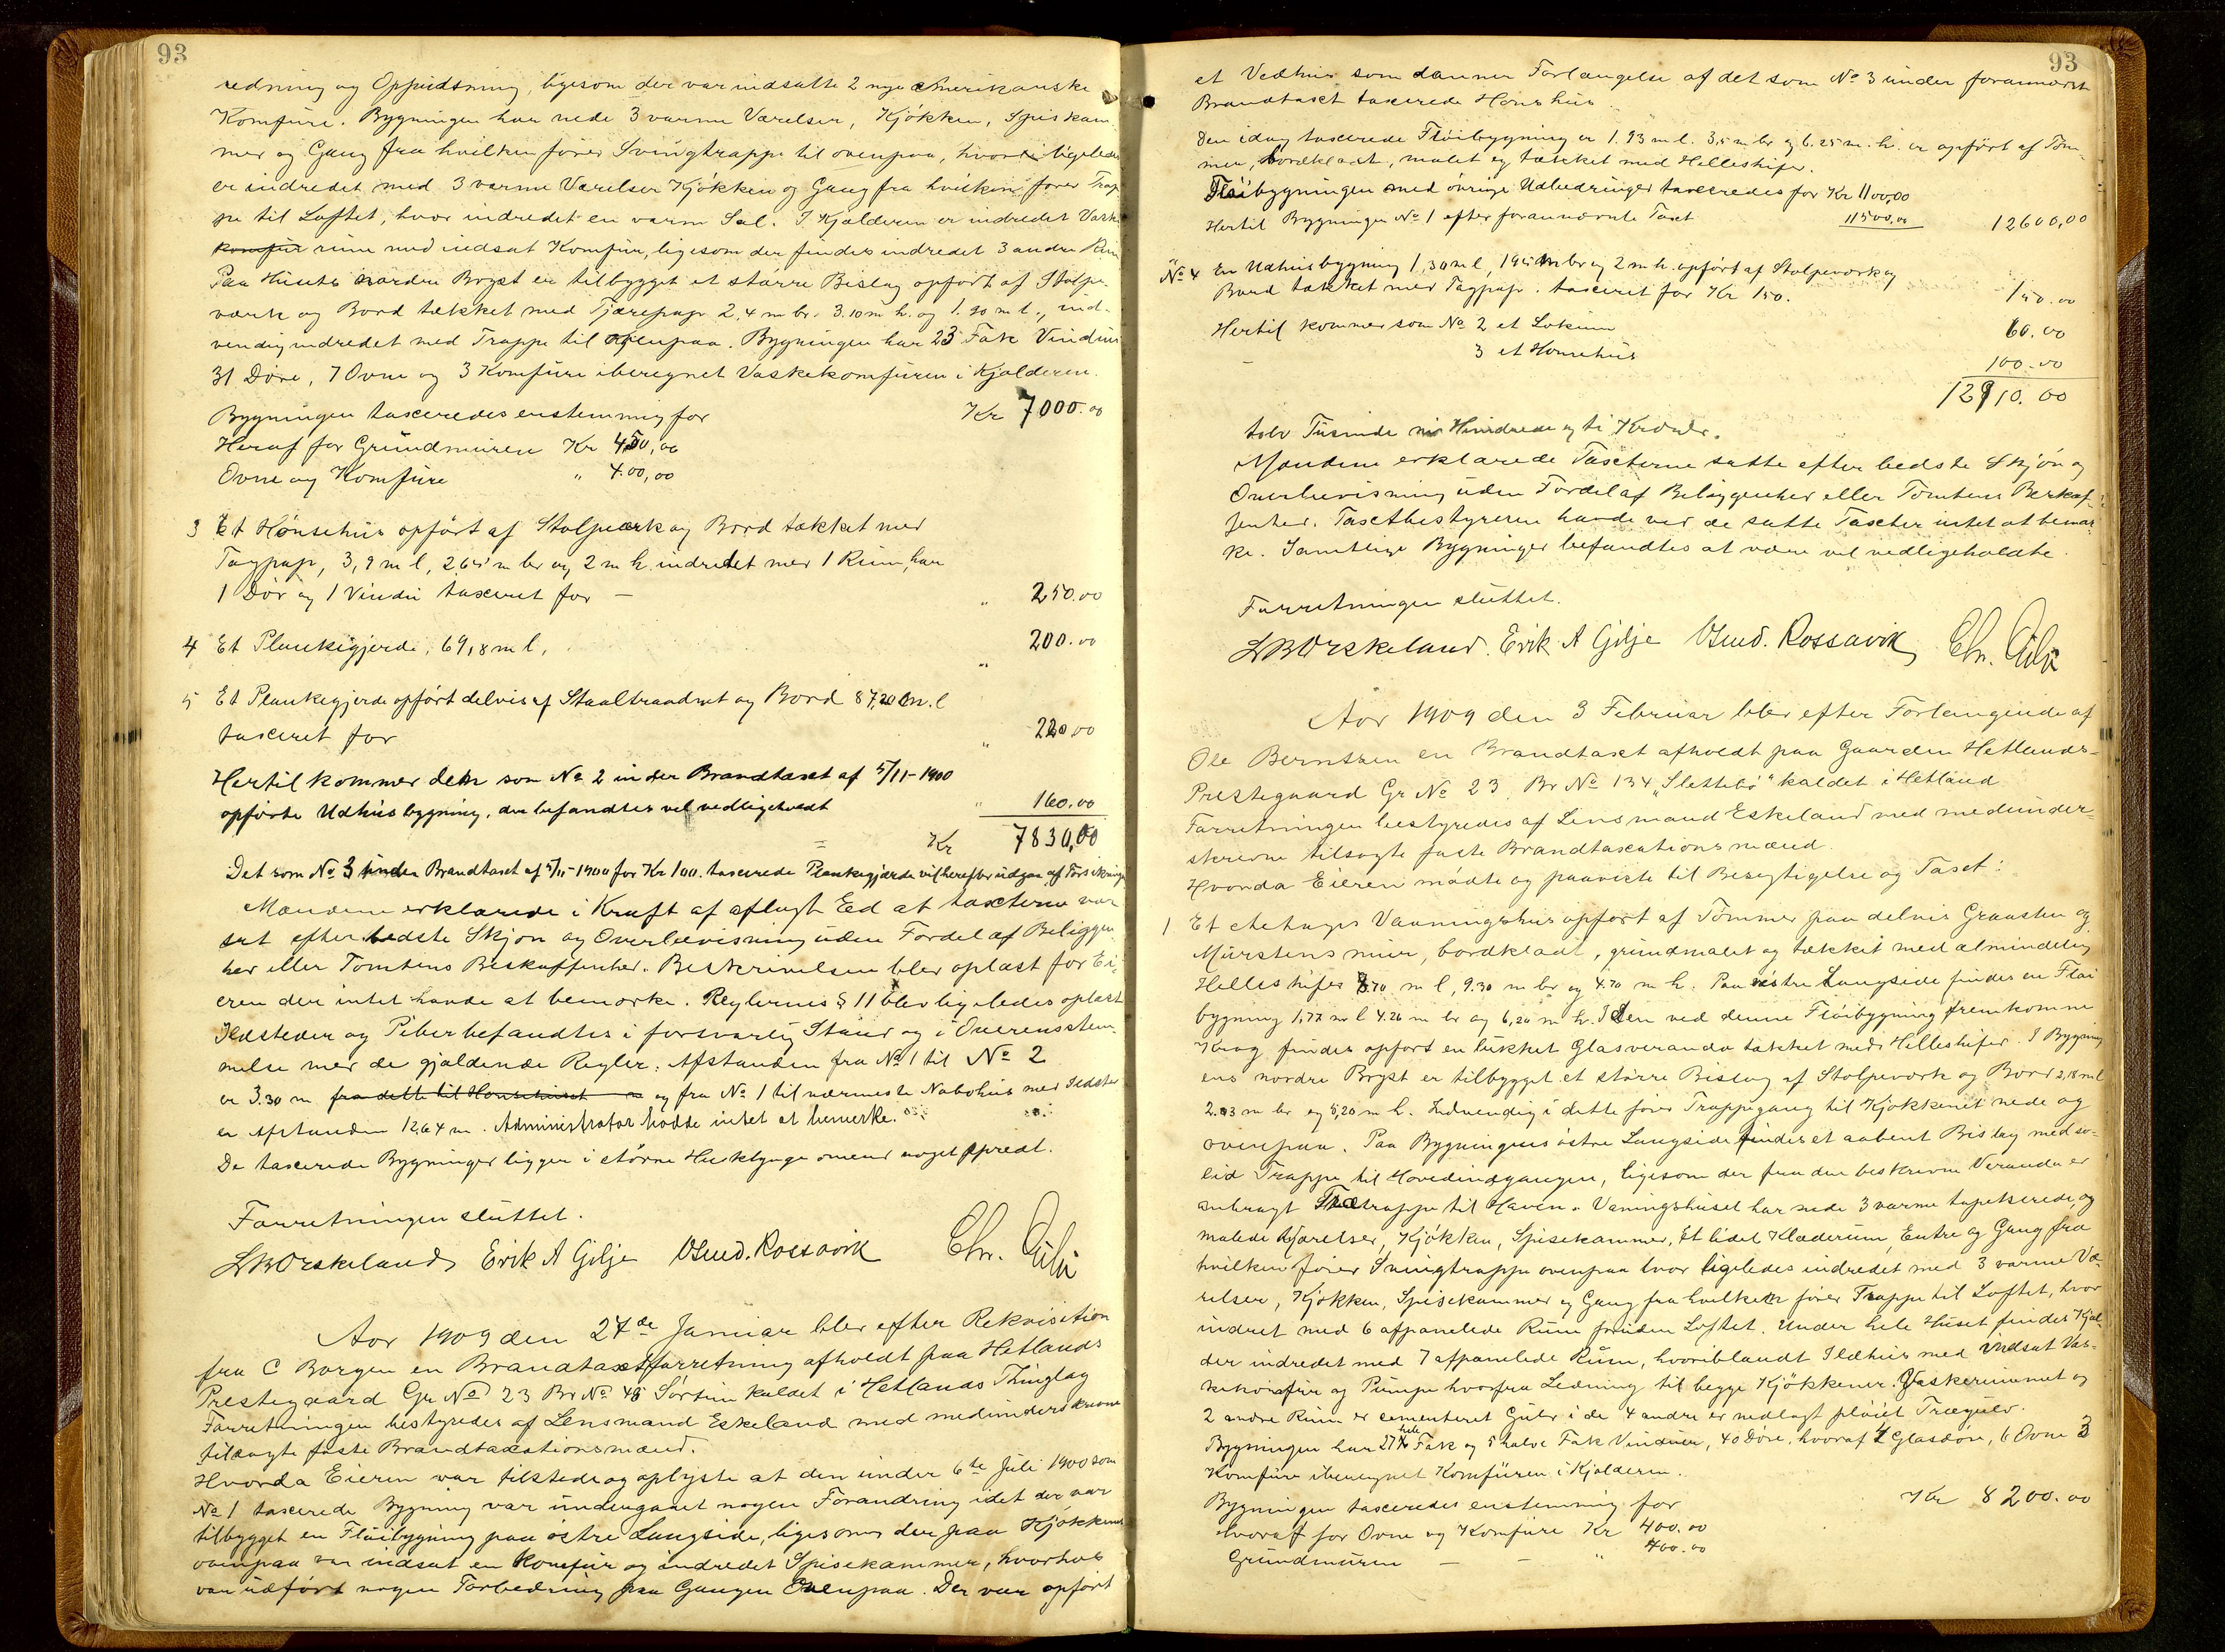 93
redning og Oppudsning, ligesom der var indsatte 2 nye Amerikanske
Komfure. Bygningen har nede 3 varme Værelser, Kjøkken, Spiskam
mer og Gang fra hvilken fører Svingtrappe til ovenpaa, hvor ligeledes
er indredet med 3 varme Værelser Kjøkken og Gang fra hvilken fører Trap
pe til Loftet, hvor indredet en varm Sal. I Kjælderen er indredet Vaske
komfur rum med indsat Komfur, ligesom der findes indredet 3 andre Rum
Paa Husets nordre Bryst er tilbygget et større Bislag opført af Stolpe-
værk og Bord tækket med Tjærepap 2,4 m br. 3.10 m h. og 1.90 m l., ind-
vendig indredet med Trappe til ovenpaa. Bygningen har 23 Fak Vinduer
31 Døre, 7 Ovne og 3 Komfure iberegnet Vaskekomfuren i Kjælderen.
Bygningen taxeredes enstemmig for Kr 7000.00
Heraf for Grundmuren Kr 450,00
Ovne og Komfure " 400,00
3 Et Hønsehus opført af Stolpeværk og Bord tækket med
Tagpap, 3,9 m l, 2,65 m br og 2 m h. indredet med 1 Rum, har
1 Dør og 1 Vindu taxeret for — " 250.00
4 Et Plankegjerde, 69,8 m l, " 200.00
5 Et Plankegjerde opført delvis af Staaltraadnet og Bord 87,20 m. l
taxeret for " 220,00
Hertil kommer den som No 2 under Brandtaxt af 5/11-1900
opførte Udhusbygning, der befandtes vel vedligeholdt " 160.00
= Kr 7830,00
Det som No 3 under Brandtaxt af 5/11-1900 for Kr 100. taxerede Plankegjærde vil herefter udgaa af Forsikringen
Mændene erklærede i Kraft af aflagt Eed at taxterne var
sat efter bedste Skjøn og Overbevisning uden Fordel af Beliggen
hed eller Tomtens Beskaffenhed. Beskrivelsen blev oplæst for Ei
eren der intet havde at bemærke. Reglernes § 11 blev ligeledes oplæst
Ildsteder og Piber befandtes i forsvarlig Stand og i Overensstem
melse med de gjældende Regler. Afstanden fra No 1 til No 2
er 3.30 m fra dette til Hønsehuset m og fra No 1 til nærmeste Nabohus med Ildsted
er Afstanden 12,64 m. Administrator hadde intet at bemerke.
De taxerede Bygninger ligger i større Husklynge omend noget spredt.
Forretningen sluttet.
LBOrskeland Erik A Gilje Osmd. Rossavik Chr. Gilje
Aar 1909 den 27de Januar blev efter Rekvisition
fra C Borgen en Brandtaxtforretning afholdt paa Hetlands
Prestegaard Gr No 23 Br No 48 Sørtun kaldet i Hetlands Thinglag
Forretningen bestyredes af Lensmand Eskeland med medunderskrevne
tilsagte faste Brandtaxationsmænd.
Hvorda Eieren var tilstede og oplyste at den under 6te Juli 1900 som
No 1 taxerede Bygning var undergaaet nogen Forandring idet der var
tilbygget en Fløibygning paa østre Langside, ligesom der paa Kjøkkenet
ovenpaa var indsat en Komfur og indredet Spisekammer, hvorhos
var udført nogen Forbedring paa Gangen Ovenpaa. Der var opført
93
et Vedhus som danner Forlængelse af det som No 3 under forannævnte
Brandtaxt taxerede Hønshus.
Den idag taxerede Fløibygning er 1.93 m l. 3,5 m br og 6.25 m. h. er opført af Tøm-
mer, bordklædt, malet og tækket med Helleskifer.
Fløibygningen med øvrige Udbedringer taxeredes for Kr 1100,00
Hertil Bygningen No 1 efter forannævnte Taxt 11500,00 12600,00
No 4 En Udhusbygning 1,30 m l, 1,95 m br og 2 m h. opført af Stolpeværk og
Bord tækket med Tagpap. taxeret for Kr 150. 150.00
Hertil kommer som No 2 et Lokum 60.00
— 3 et Hønsehus 100.00
12910.00
tolv Tusinde ni Hundrede og ti Kroner.
Mændene erklærede Taxterne satte efter bedste Skjøn og
Overbevisning uden Fordel af Beliggenhed eller Tomtens Beskaf-
fenhed. Taxtbestyreren havde ved de satte Taxter intet at bemær
ke. Samtlige Bygninger befandtes at være vel vedligeholdte.
Forretningen sluttet.
LBOrskeland. Erik A Gilje Osmd. Rossavik Chr. Gilje
Aar 1909 den 3 Februar blev efter Forlangende af
Ole Berntzen en Brandtaxt afholdt paa Gaarden Hetlands-
Prestegaard Gr No 23. Br No 134 "Slettebø" kaldet i Hetland
Forretningen bestyredes af Lensmand Eskeland med medunder-
skrevne tilsagte faste Brandtaxationsmænd.
Hvorda Eieren mødte og paaviste til Besigtigelse og Taxt:
1 Et etetages Vaaningshus opført af Tømmer paa delvis Graasten og
Murstens mur, bordklædt, grundmalet og tækket med almindelig
Helleskifer 8.70 m l, 9.30 m br og 4.70 m h. Paa østre Langside findes en Fløi
bygning 1,77 m l 4.26 m br og 6,20 m h. I den ved denne Fløibygning fremkomne
Krog findes opført en lukket Glasveranda tækket med Helleskifer. I Bygning
ens nordre Bryst er tilbygget et større Bislag af Stolpeværk og Bord 2,18 m l
2.03 m br og 5,20 m h. Indvendig i dette fører Trappegang til Kjøkkenet nede og
ovenpaa. Paa Bygningens østre Langside findes et aabent Bislag med so-
lid Trappe til Hovedindgangen, ligesom der fra den beskrevne Veranda er
anbragt Trætrappe til Haven. Vaningshuset har nede 3 varme tapetserede og
malede Værelser, Kjøkken, Spisekammer, Et lidet Klæderum, Entre og Gang fra
hvilken fører Svingtrappe ovenpaa hvor ligeledes indredet med 3 varme Væ-
relser, Kjøkken, Spisekammer og Gang fra hvilken fører Trappe til Loftet, hvor
indret med 6 afpanelede Rum foruden Loftet. Under hele Huset findes Kjæl-
der indredet med 7 afpanelede Rum, hvoriblandt Ildhus med indsat Vas-
kekomfur og Pumpe hvorfra Ledning til begge Kjøkkener. Vaskerummet og
2 andre Rum er cementeret Gulv i de 4 andre er nedlagt pløiet Trægulv.
Bygningen har 27 hele Fak og 5 halve Fak Vinduer, 40 Døre, hvoraf 4 Glasdøre, 6 Ovne 3
Komfure iberegnet Komfuren i Kjælderen.
Bygningen taxeredes enstemmig for Kr 8200.00
Hvoraf for Ovne og Komfure Kr 400.00
Grundmuren — — " 400.00